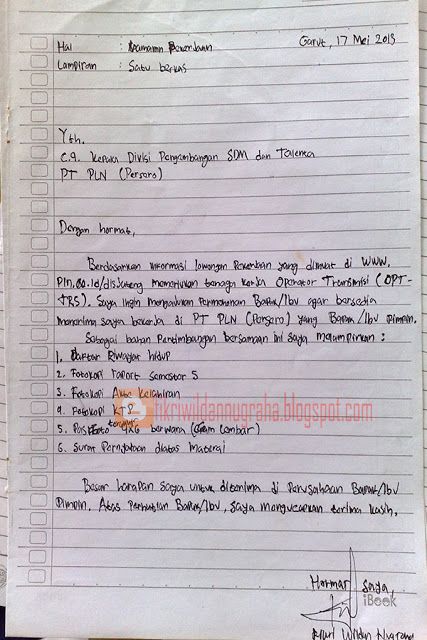 Garut, 17 Mei 2013
Hal : Lamaran Pekerjaan
Lampiran : Satu berkas
Yth.
c.q. Kepala Divisi Pengembangan SDM dan Talenta
PT PLN (Persero)
Dengan hormat,
Berdasarkan informasi lowongan Pekerjaan yang dimuat di WWW.
Pln.co.id/disjateng memerlukan tenaga kerja Operator Transmisi (OPT-
TRS). Saya ingin mengajukan Permohonan Bapak/Ibu agar bersedia
menerima saya bekerja di PT PLN (Persero) yang Bapak/Ibu Pimpin.
Sebagai bahan Pertimbangan bersamaan ini saya melampirkan :
1. Daftar Riwayat hidup
2. Fotokopi raport semester 5
3. Fotokopi Akte Kelahiran
4. Fotokopi KTP
5. Pas Foto terbaru 4x6 berwarna (Enam Lembar)
6. Surat Pernyataan diatas Materai
fikriwildannugraha.blogspot.com
Besar harapan saya untuk diterima di Perusahaan Bapak/Ibu
Pimpin. Atas Perhatian Bapak/Ibu, saya mengucapkan terima kasih.
Hormat saya,
iBook
Fikri Wildan Nugraha